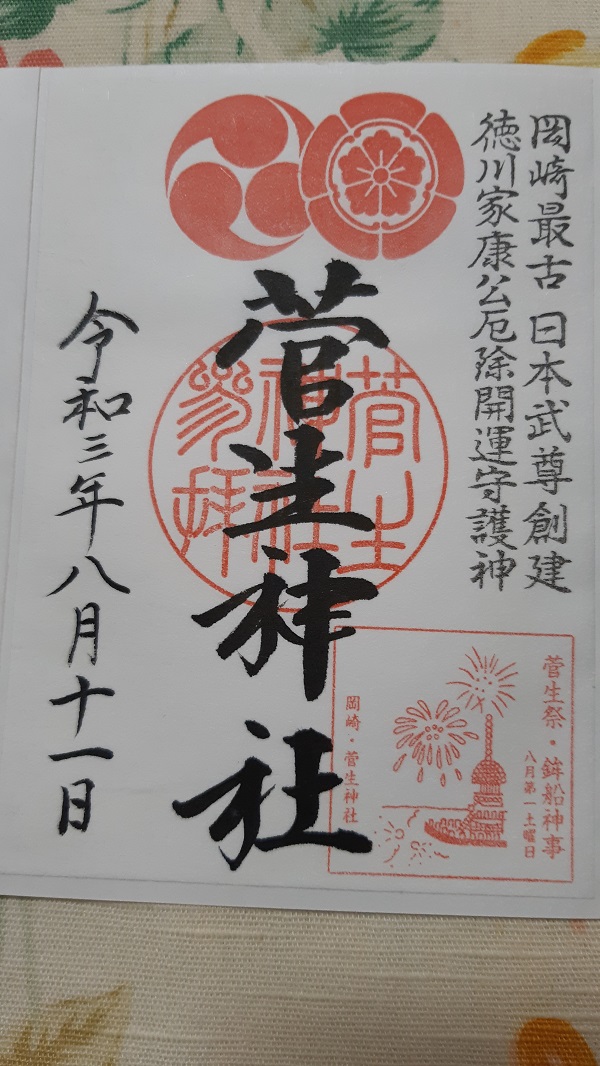 岡崎最古 日本武尊創建
徳川家康公厄除開運守護神
菅生神社
菅生神社参拝
令和三年八月十一日
菅生祭・鉾船神事
八月第一土曜日
岡崎・菅生神社